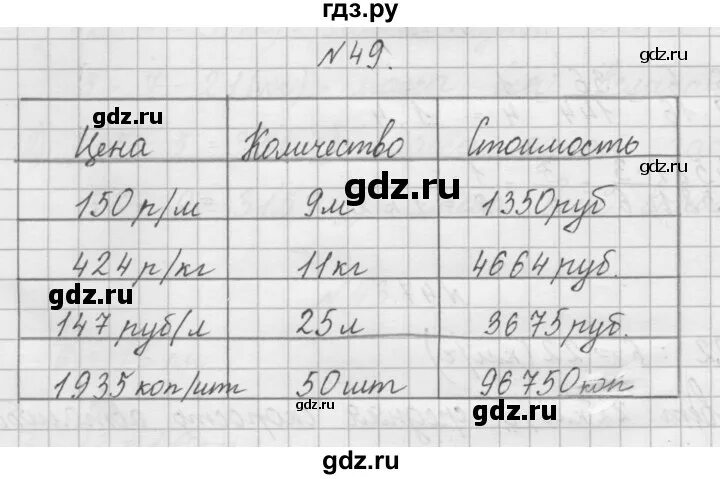 гдз.ру
№49.
gdz.ru
gdz.ru
Цена Количество Стоимость
gdz.ru
gdz.ru
150 р/м 9м 1350 руб
424 р/кг 11 кг 4664 руб.
gdz.ru
gdz.ru
147 руб/л 25 л 3675 руб.
1935 коп/шт 50 шт 96750 коп
gdz.ru
gdz.ru
gdz.ru